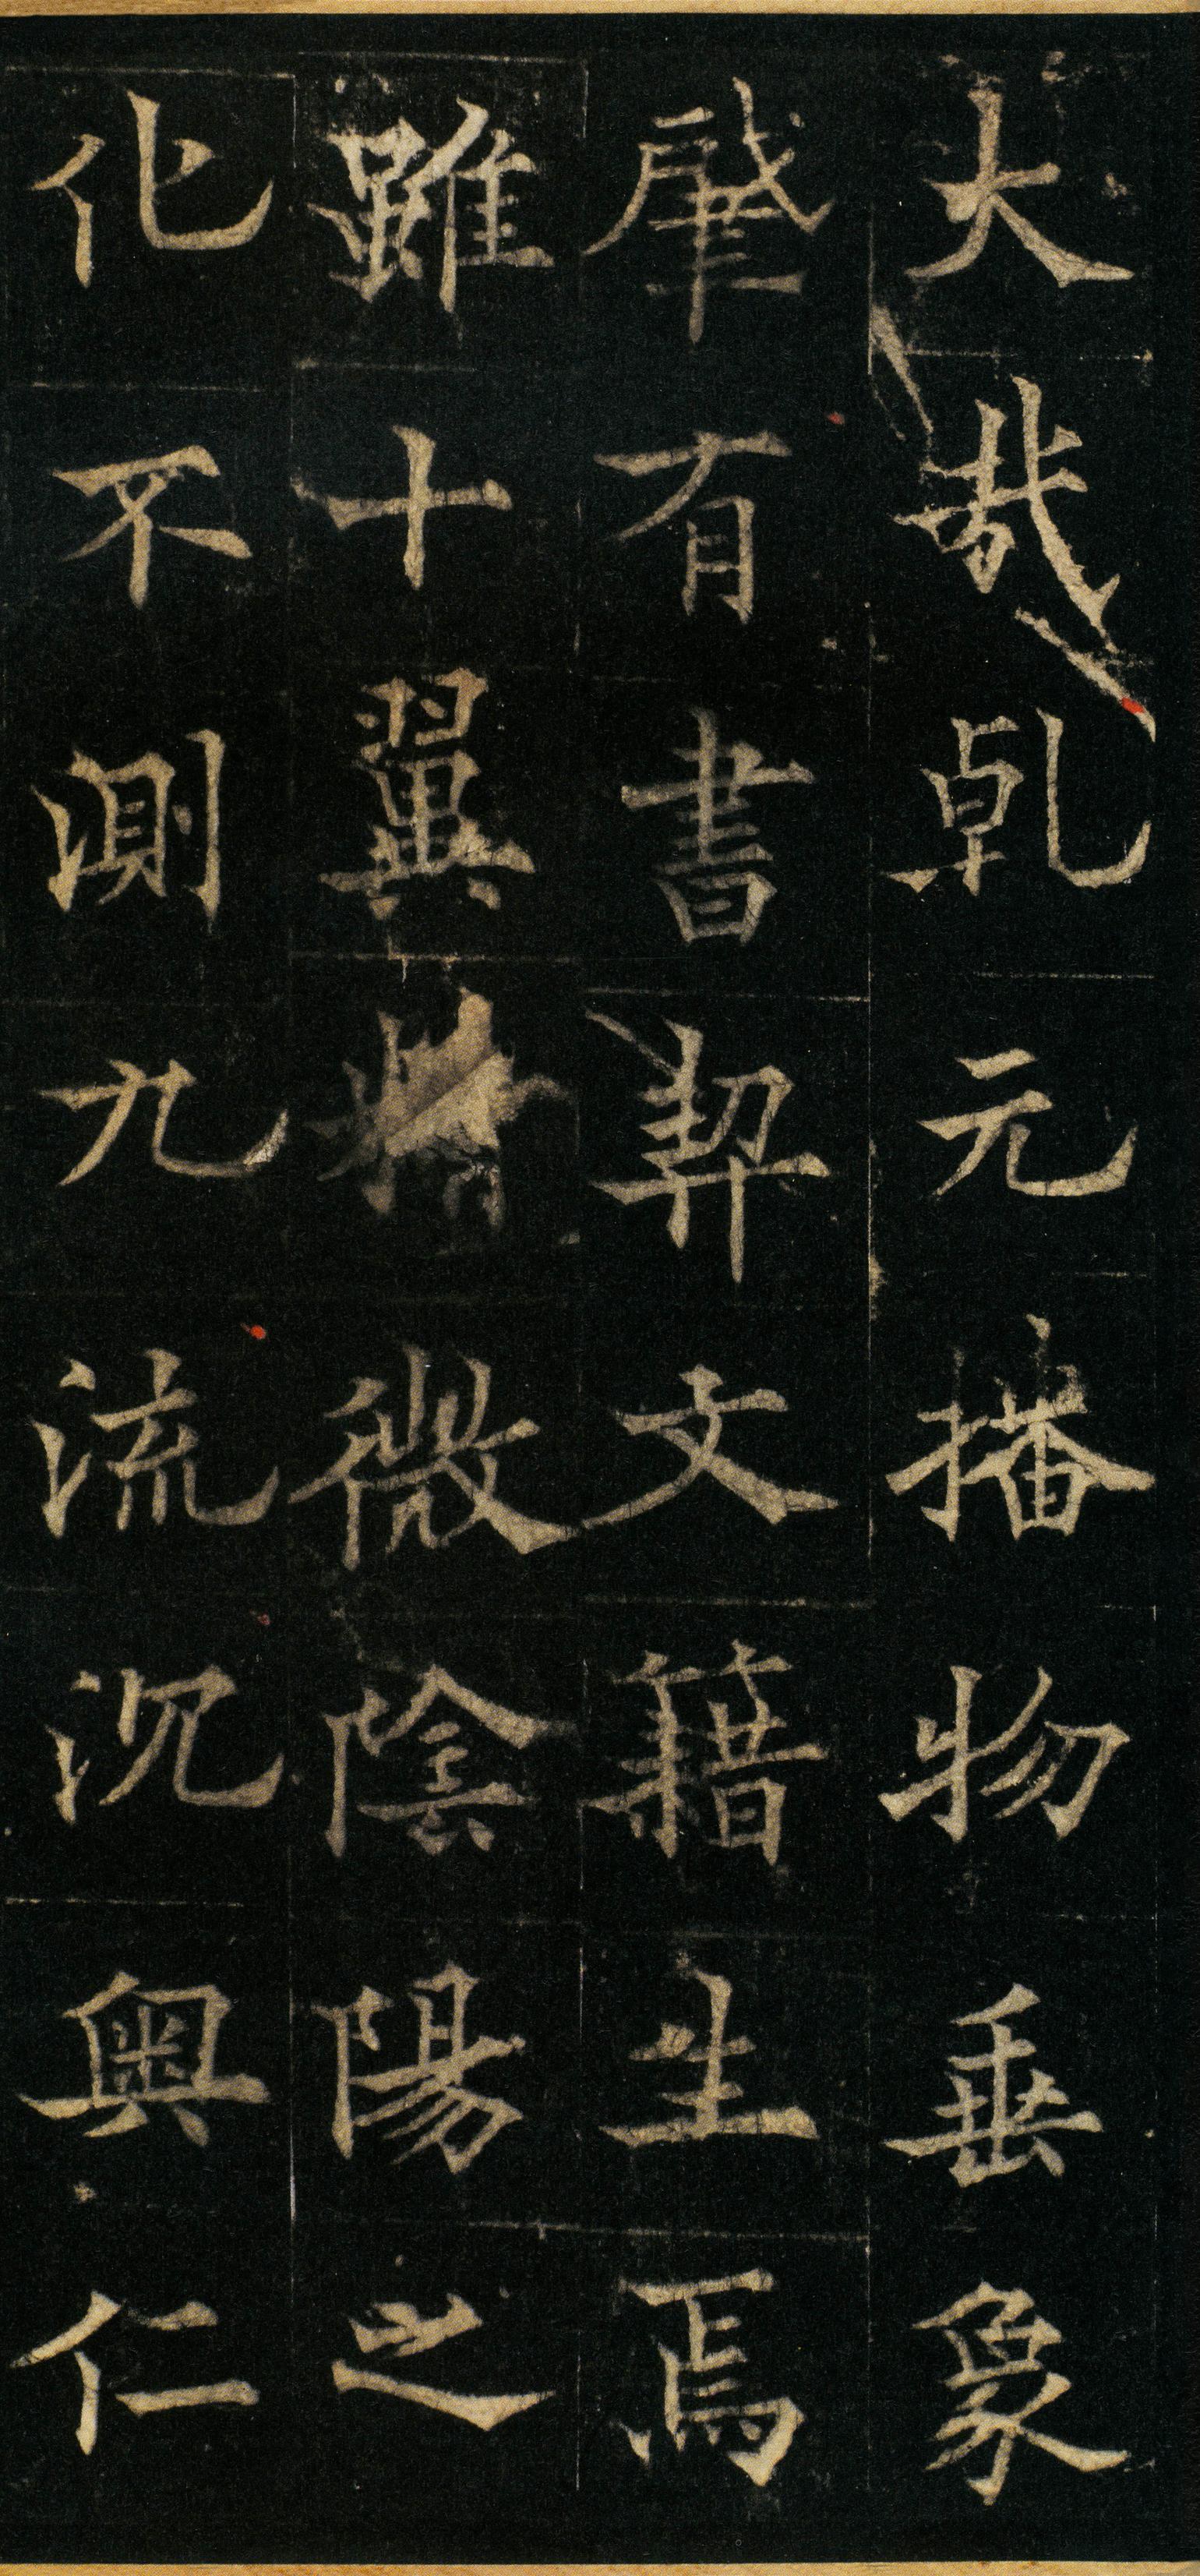 大哉乾元播物垂象
肇有書契文籍生焉
雖十翼精微陰陽之
化不測九流沉奧仁